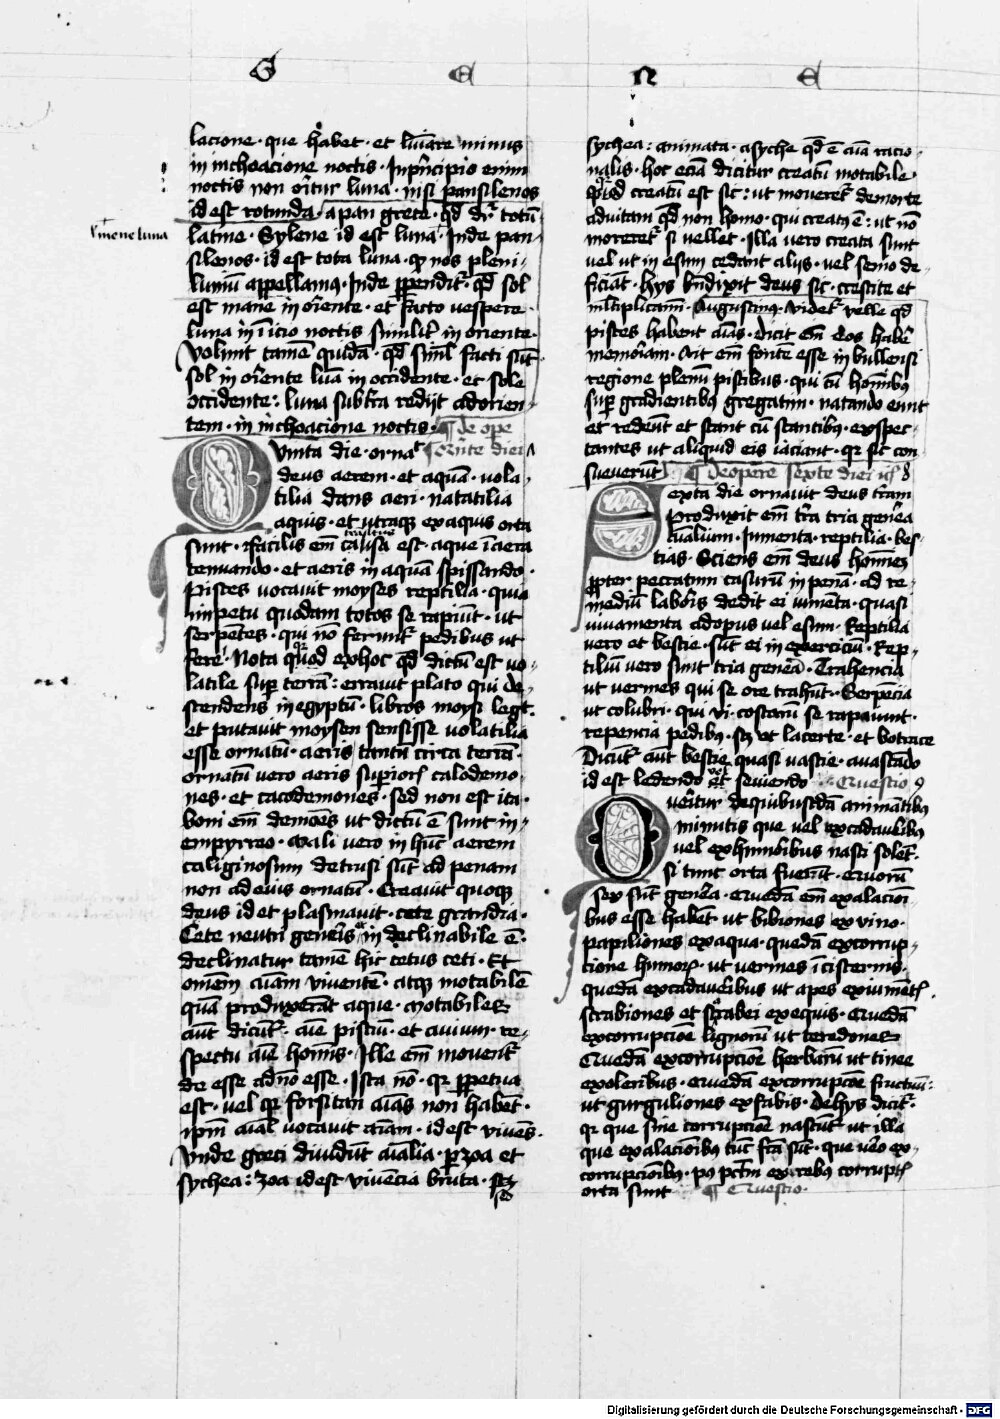 G E N E
lacione · que habet · et lunare minus
in inchoacione noctis · In principio enim
noctis non oritur luna · nisi pansilenos
id est rotunda · a pan grece · qd dr totu
latine · Sylene id est luna · Inde pan
silenos · id est tota luna · qd nos pleni
luniu appellamus · Inde perpenditr · qd sol
est mane in oriente · et facto vespere
luna in inicio noctis similit in oriente ·
Volunt tamen quidam · qd siml facti sut
sol in oriente lua in occidente · et sole
occidente : luna sub tra rediit ad orien
tem · in inchoacione noctis · ¶ de ope
Quinta die · ornat qinte diei
deus aerem · et aqua · vola
tilia dans aeri · natatilia
aquis · et utraque ex aquis orta
sunt · Facilis em transitus est · aque i aera
tenuando · et aeris in aqua spissando ·
Pisces vocavit moyses reptilia · quia
impetu quodam totos se rapiunt · ut
serpentes · qui no feruntr pedibus ut
fere · Nota quod ex hoc qd dictu est vo
latile sup terra : erravit plato qui de
scendens in egyptu · libros moysi legit ·
et putavit moysen sensisse volatilia
esse ornatu · aeris tantu circa terra ·
ornatu vero aeris superior calodemo
nes · et cacodemones · sed non est ita ·
boni em demoes ut dictu e sunt in
empyrreo · Mali vero in huc aerem
caliginosum detrusi sut ad penam
non ad eius ornatu · Creavit quoque
deus id et plasmavit · cete grandia ·
Cete neutri generis indeclinabile e ·
declinatur tame hic cetus ceti · Et
omem aiam vivente · atque motabile
qua produxerat aque · Motabiles
aut dicutr · aie pisciu · et avium · re
spectu aie hominis · Ille em moventr
de esse ad no esse · Ista no · qr perpetua
est · vel qr forsitan aias non habet ·
ipm aial vocavit aiam · id est vivens ·
Unde greci dividut aialia · per zoa et
sychea : zoa id est vivencia bruta ·
sed
sychea : animata · a syche qd e aia racio
nalis · hoc eciam dicitur creatu motabile ·
Quod creatu est sic : ut moveretr de morte
ad vitam qd non homo · qui creatus e : ut no
moreretr si vellet · Illa vero creata sunt
vel ut in esum cedant aliis · vel senio de
ficiat · Hys bndixit deus sic · crescite et
mltiplicam · Augustinus · videtr velle qd
pisces habent aias · dicit em eos habe
memoriam · Ait em fonte esse in bullensi
regione plenu piscibus · qui cu hominibus
super gradientibus gregatim · natando eunt
et redeut et stant cu stantibus · exspec
tantes ut aliquid eis iaciant · qr sic con
sueverut ¶ De opere sexte diei
Sexta die ornavit deus tram
Produxit em tra tria genera
aialium · Iumenta · reptilia · bes
tias · Sciens em deus homines
propter peccatum casuru in pena · ad re
mediu laboris dedit ei iumenta · quasi
iuvamenta ad opus vel esum · Reptilia
vero et bestie · sut ei in exerciciu · Rep
tiliu vero sunt tria genera · Trahencia
ut vermes qui se ore trahut · Serpecia
ut colubri · qui vi costaru se rapaunt ·
repencia pedibus · sz ut lacerte · et botrace
Dicutr aut bestie quasi vastie · a vastado
id est ledendo vel seviendo · Questio
Queritur de quibusda animatibus
minutis que vel ex cadaveribus
vel ex humoribus nasci solet ·
si tunc orta fuerut · Quoru
sex sut genera · Queda em ex alacioi
bus esse habet ut bibiones ex vino ·
papiliones ex aqua · queda ex corrup
cione humor · ut vermes i cisternis ·
queda ex cadaveribus ut apes ex iumet ·
scrabiones et scarabei ex equis · Queda
ex corrupcioe lignoru ut teredones
Queda ex corrupcioe herbaru ut tinee
ex oleribus · Queda ex corrupcoe fructuu :
ut gurguliones ex fabis · De hys dicitr ·
qr que sine corrupcioe nascutr ut illa
que ex alacioibus tuc fca sut · que vero ex
corrupcioibus · po pctm ex rebus corruptis
orta sunt ¶ Questio ·
Digitalisierung gefördert durch die Deutsche Forschungsgemeinschaft · DFG